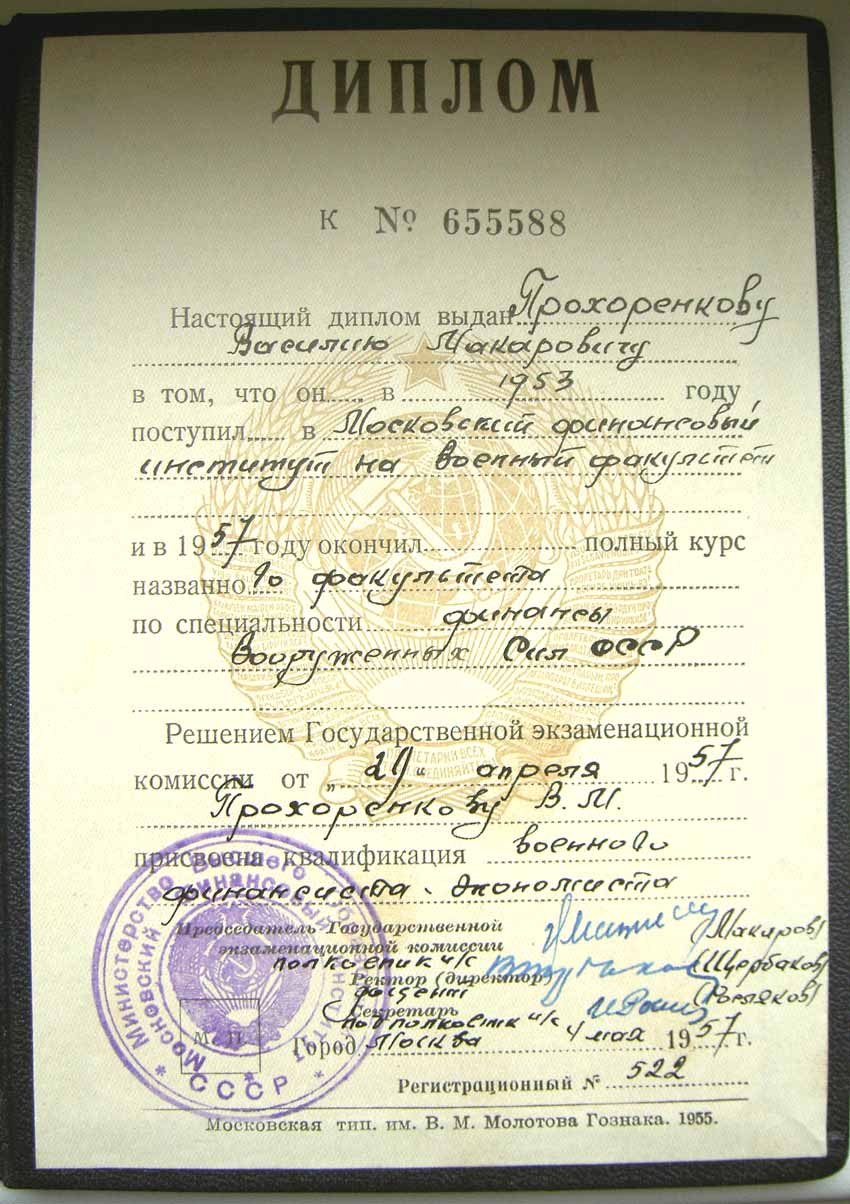 ДИПЛОМ
К № 655588
Настоящий диплом выдан Прохоренкову
Василию Макаровичу
в том, что он в 1953 году
поступил в Московский финансовый
институт на военный факультет
и в 1957 году окончил полный курс
названного факультета
по специальности финансы
Вооруженных Сил СССР
Решением Государственной экзаменационной
комиссии от „29“ апреля 1957 г.
Прохоренкову В. М.
присвоена квалификация военного
финансиста-экономиста
Председатель Государственной
экзаменационной комиссии (Макаров)
полковник и/с
Ректор (директор) (Щербаков)
доцент
Секретарь
подполковник и/с
Город Москва 4 мая 1957 г.
М. П.
Регистрационный № 522
Московская тип. им. В. М. Молотова Гознака. 1955.
Министерство Высшего
Московский финансовый институт
СССР